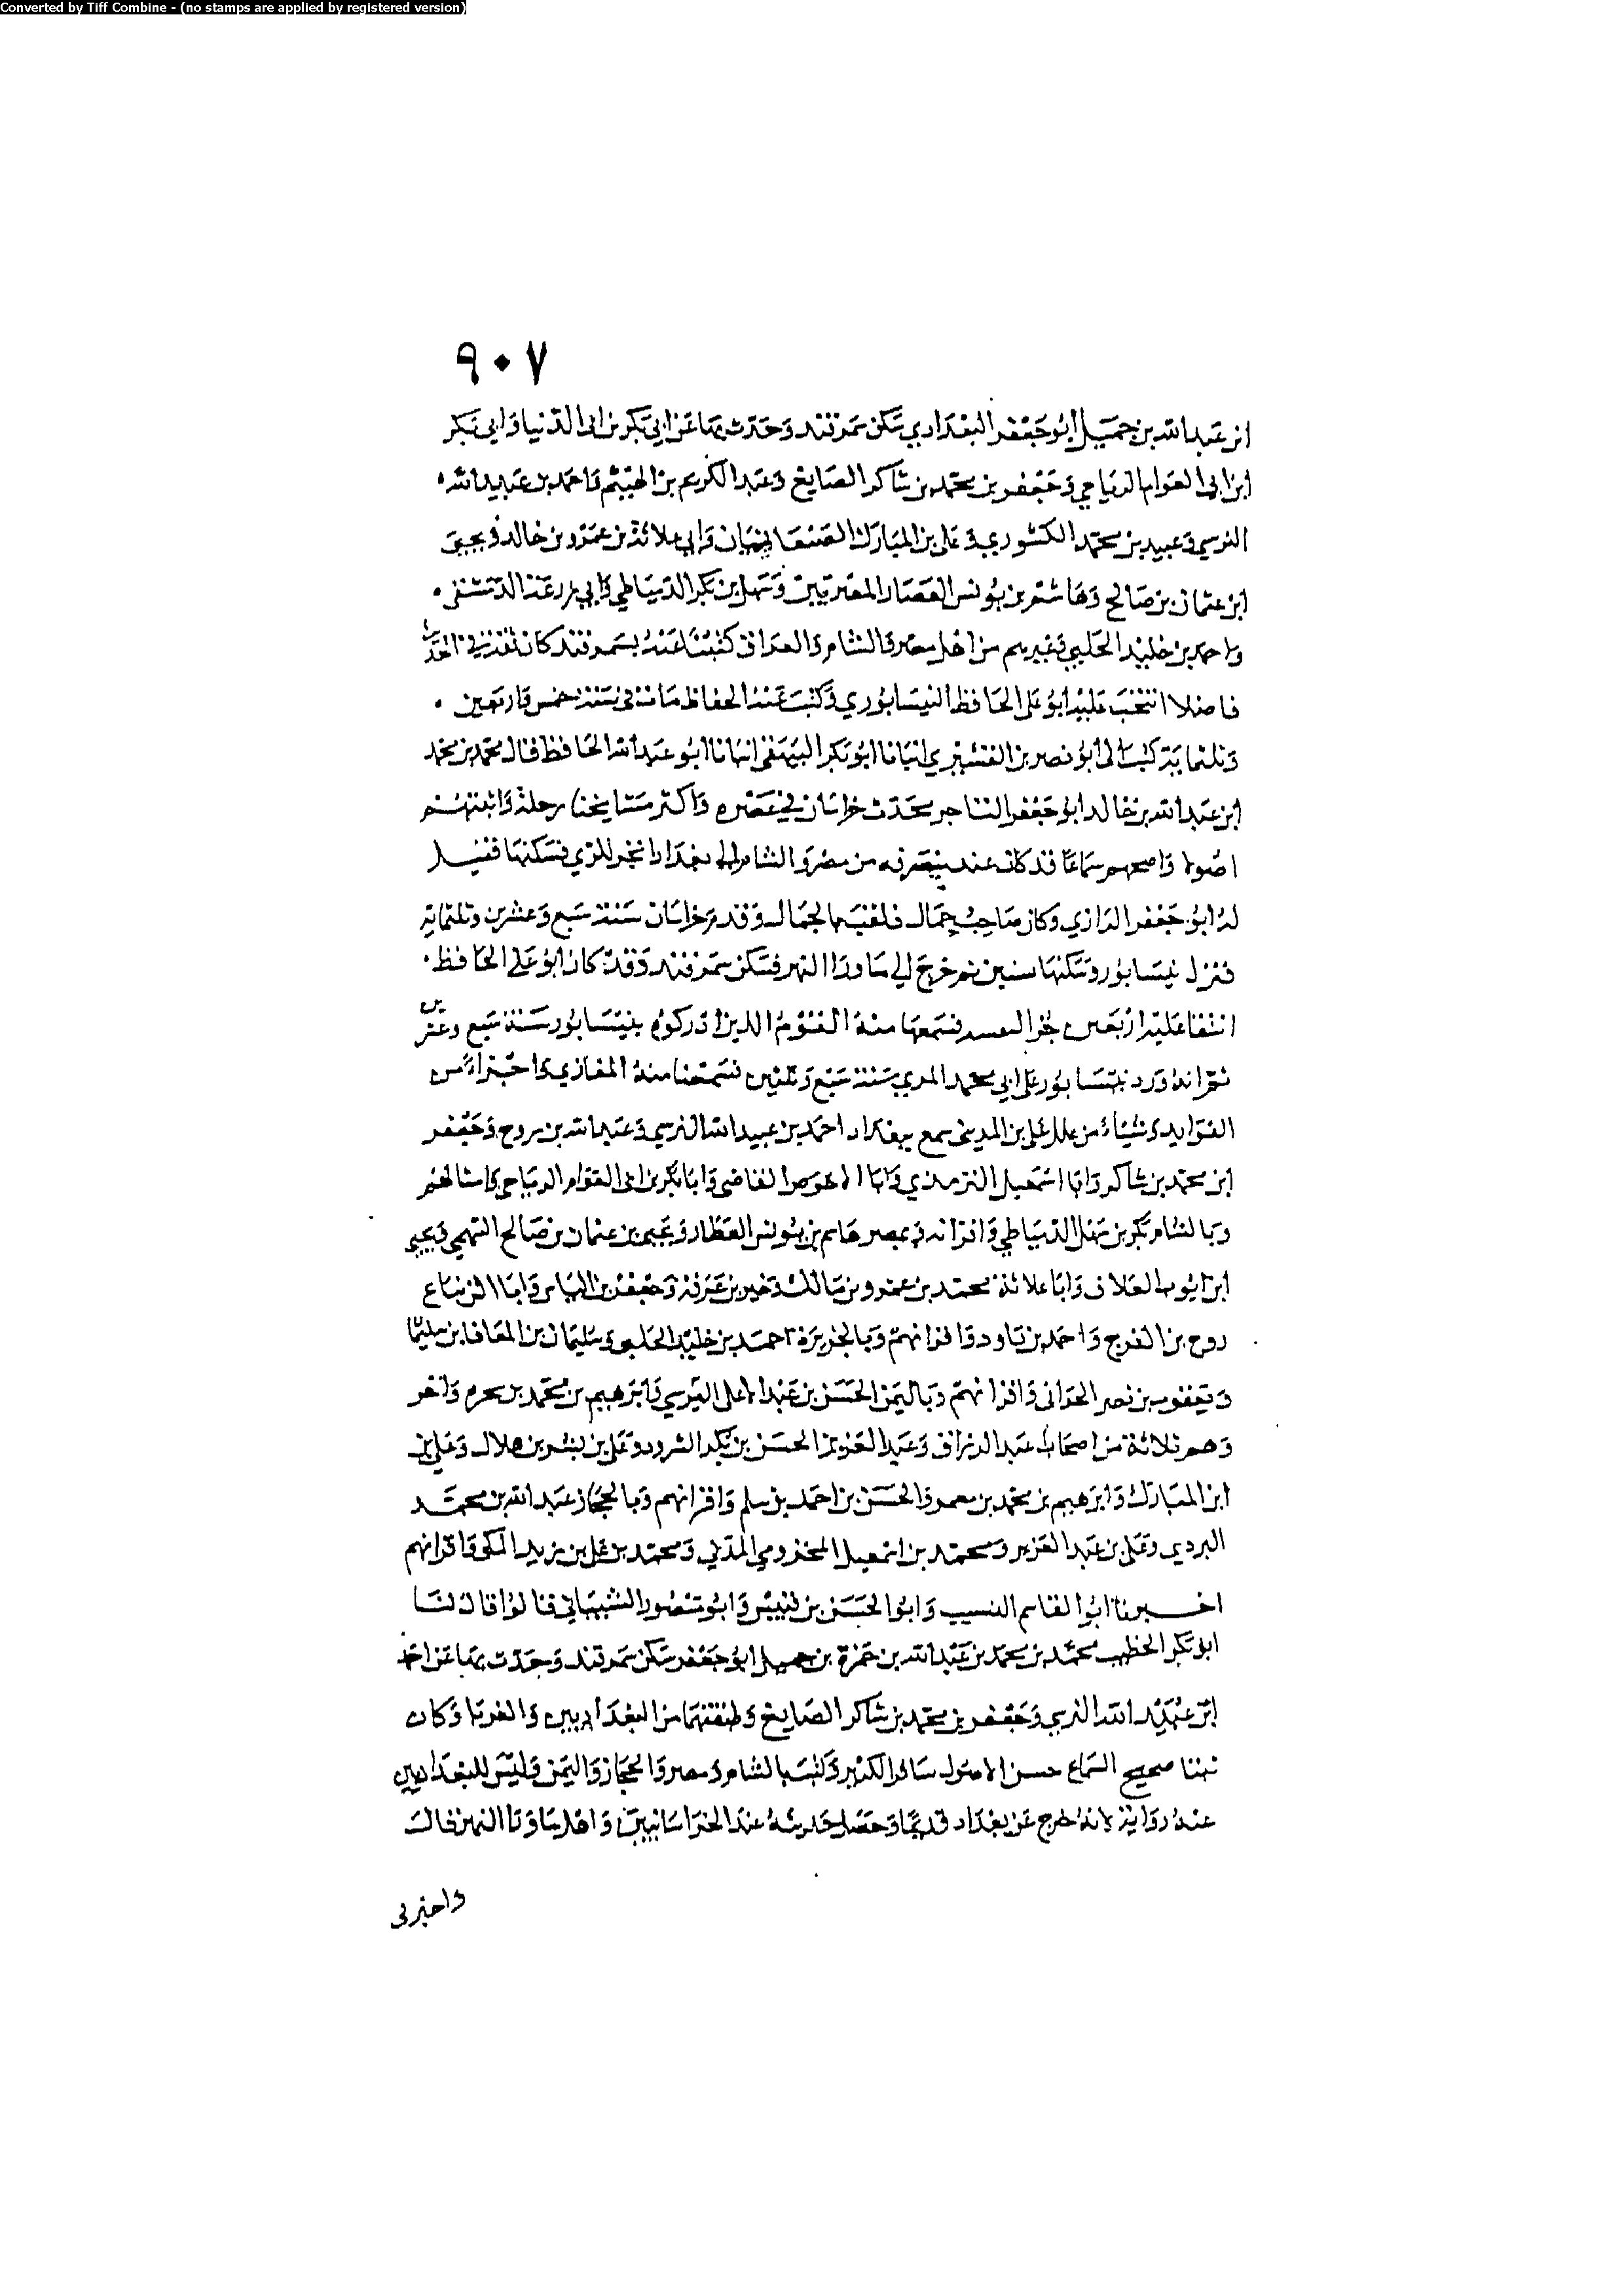 Converted by Tiff Combine - (no stamps are applied by registered version)
٩٠٧
ابن عبد الله بن جميل ابو جعفر البغدادي سكن سمرقند وحدث بها عن ابي بكر بن ابى الدنيا وابي بكر
ابن ابى العوام الرياحي وجعفر بن محمد بن شاكر الصايغ وعبد الكريم بن الهيثم واحمد بن عبيد الله
النرسي وعبيد بن محمد الكشوري وعلى بن المبارك الصنعانيان وابي علاثة بن عمرو بن خالد ويحيى
ابن عثمان بن صالح وهاشم بن يونس القصار المصريين وسهل بن بكر الدمياطي وابي زرعة الدمشقى
واحمد بن خليد الحلبي وغيرهم من اهل مصر والشام والعراق كتبنا عنه بسمرقند كان ثقة في الحديث
فاضلا انتخب عليه ابو على الحافظ النيسابوري وكتب عنه الحفاظ مات في سنة خمس واربعين
وثلثماية كتب الى ابو نصر بن القشيري انبانا ابو بكر البيهقى انبانا ابو عبد الله الحافظ قال محمد بن محمد
ابن عبد الله بن خالد ابو جعفر التاجر محدث خراسان في عصره واكثر مشايخنا رحلة واثبتهم
اصولا واصحهم سماعا قد كان عند منصرفه من مصر والشام الى بغداد اتجر للري فسكنها فقيل
له ابو جعفر الرازي وكان صاحب جمال فلقب بالجمال وقدم خراسان سنة سبع وعشرين وثلثماية
فنزل نيسابور وسكنها سنين ثم خرج الي ما ورا النهر فسكن سمرقند وقد كان ابو على الحافظ
انتقا عليه اربعين جزا فسمعها منه القوم الذين ادركوه بنيسابور سنة سبع وعشرين
ثم انه ورد نيسابور على ابي محمد المري سنة سبع وثلثين فسمعنا منه المغازي واجزاء من
الفوايد وشياء من علل على بن المديني سمع ببغداد احمد بن عبيد الله النرسي وعبد الله بن روح وجعفر
ابن محمد بن شاكر وابا اسمعيل الترمذي وابا الاحوص القاضى وابا بكر بن ابى العوام الرياحي وامثالهم
وبالشام بكر بن سهل الدمياطي واقرانه وبمصر هاشم بن يونس العطار ويحيى بن عثمان بن صالح السهمي ويحيى
ابن ايوب العلاف وابا علاثة محمد بن عمرو بن مالك وخير بن عرفة وجعفر بن الياس وابا الزنباع
روح بن الفرج واحمد بن داود واقرانهم وبالجزيرة احمد بن خليد الحلبى وسليمان بن المعافا بن سليما
ويعقوب بن نصر الحرانى واقرانهم وباليمن الحسن بن عبد الاعلى النرسي وابرهيم بن محمد بن واخر
وهم ثلاثة من اصحاب عبد الرزاق وعبد العزيز الحسن بن بكر الشرود وعلى بن بشر بن هلال وعلى بن
ابن المبارك وابرهيم بن محمد بن معمر والحسن بن احمد بن سلم واقرانهم وبالحجاز عبد الله بن محمد
البردي وعلى بن عبد العزيز ومحمد بن اسمعيل المخزومي المدني ومحمد بن على بن يزيد المكى واقرانهم
اخبرنا ابو القاسم النسيب وابو الحسن بن قبيس وابو منصور الشيباني قالوا قال لنا
ابو بكر الخطيب محمد بن محمد بن عبد الله بن حمزة بن جميل ابو جعفر سكن سمرقند وحدث بها عن احمد
ابن عبيد الله النرسي وجعفر بن محمد بن شاكر الصايغ وطبقتهما من البغداديين والغربا وكان
ثبتا صحيح السماع حسن الاصول سافر الكثير وكتب بالشام ومصر والحجاز واليمن وليس للبغداديين
عنه رواية لانه خرج عن بغداد قديما وحصل حديثه عند الخراسانيين واهل ما ورا النهر قال
واخبرنى